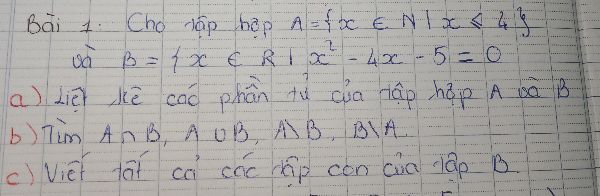 Bài 1. Cho tập hợp A = {x ∈ N | x ⩽ 4}
và B = {x ∈ R | x² - 4x - 5 = 0
a) Liệt kê các phần tử của tập hợp A và B
b) Tìm A ∩ B, A ∪ B, A\B, B\A.
c) Viết tất cả các tập con của tập B.